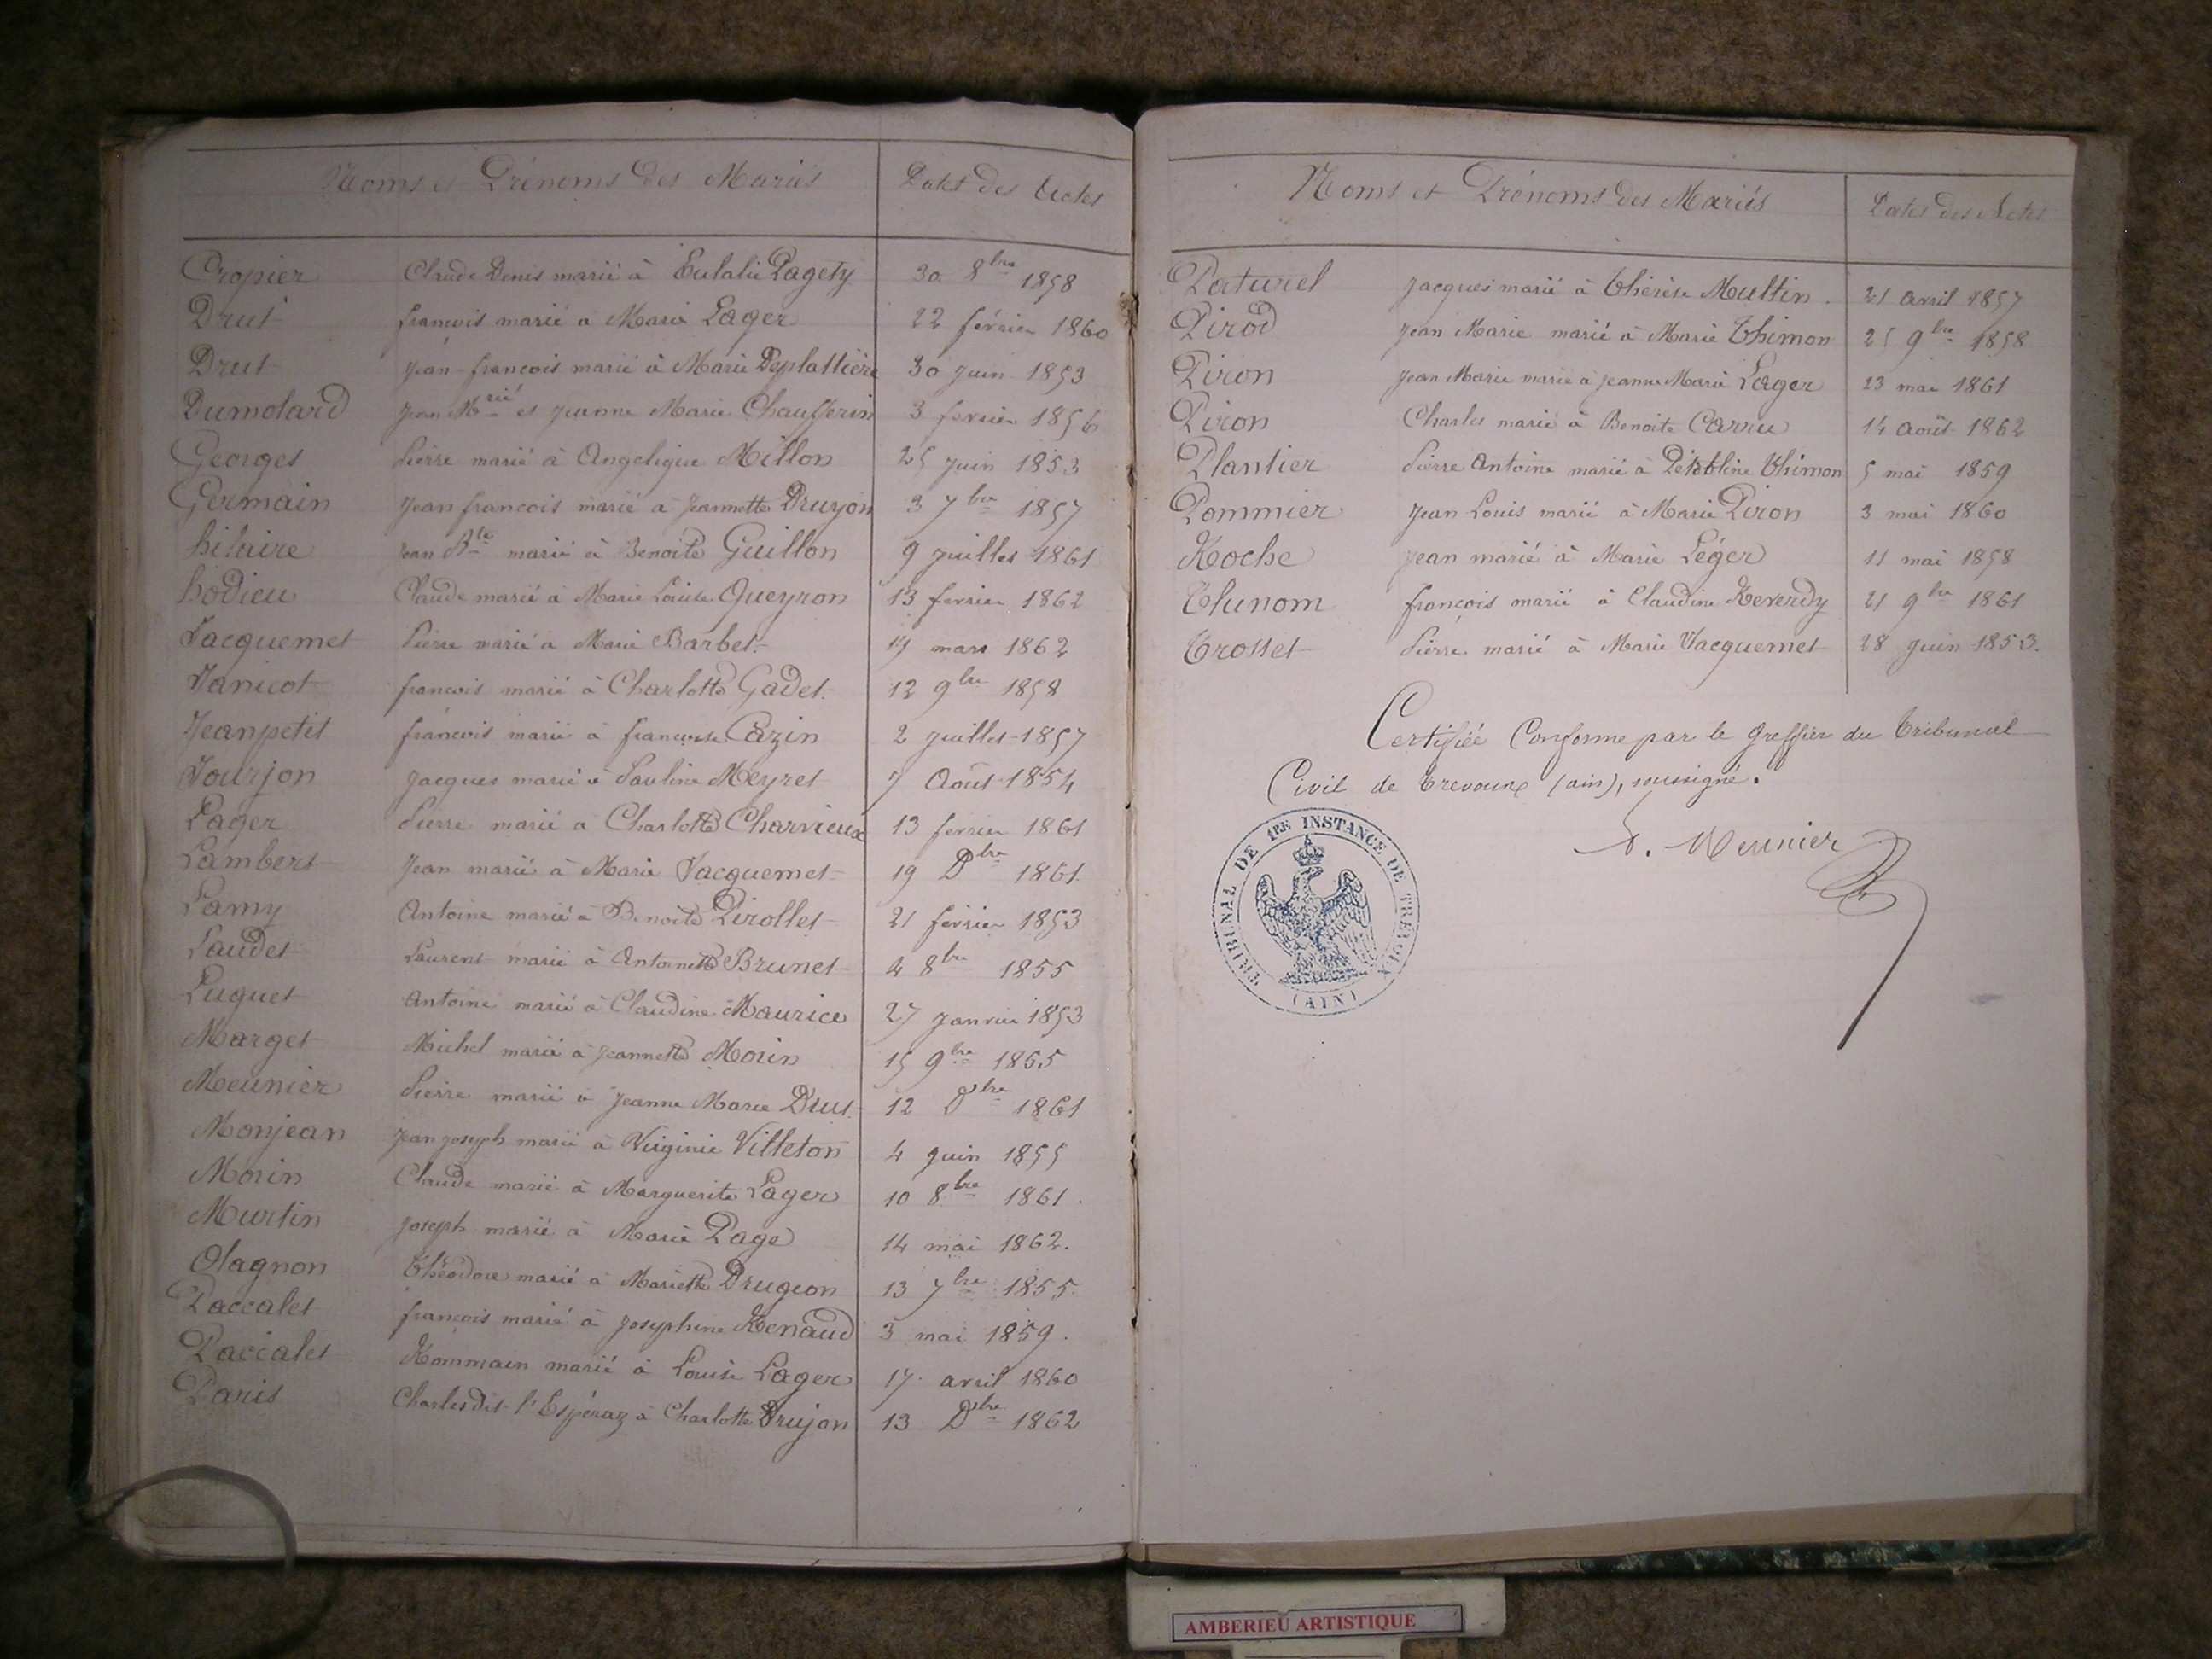 Noms et Prénoms des Mariés Dates des Actes
Cropier Claude Denis marié à Eulalie Pagety 30 8bre 1858
Drut françois marié à Marie Lager 22 février 1860
Drut jean-françois marié à Marie Deplattière 30 juin 1853
Dumolard jean Mrié et jeanne Marie Chaufferin 3 fevrier 1856
Georges Pierre marié à Angelique Millon 25 juin 1853
Germain jean françois marié à jeannette Druyon 3 7bre 1857
hilaire jean Bte marié à Benoite Guillon 9 juillet 1861
hodieu Claude marié à Marie Louise Queyron 13 fevrier 1862
Jacquemet Pierre marié à Marie Barbet 19 mars 1862
Janicot françois marié à Charlotte Gadet. 12 9bre 1858
Jeanpetit françois marié à francoise Cazin 2 juillet 1857
Jourjon jacques marié à Pauline Meyret 7 Août 1854
Lager Pierre marié à Charlotte Charvieux 13 fevrier 1861
Lambert Jean marié à Marie Jacquemet 19 Dbre 1861.
Lamy Antoine marié à Benoite Pirollet 21 février 1853
Laudet Laurent marié à Antoinette Brunet 4 8bre 1855
Luguet Antoine marié à Claudine Maurice 27 janvier 1853
Marget Michel marié à jeannette Morin 15 9bre 1855
Meunier Pierre marié à Jeanne Marie Drut 12 Dbre 1861
Monjean jean joseph marié à Virginie Villeton 4 juin 1855
Morin Claude marié à Marguerite Lager 10 8bre 1861.
Murtin joseph marié à Marie Page 14 mai 1862.
Olagnon Théodore marié à Mariette Drugeon 13 7bre 1855.
Paccalet françois marié à josephine Renaud 3 mai 1859.
Paccalet Rommain marié à Louise Lager 17 avril 1860
Paris Charles dit l'Espéraz à Charlotte Drujon 13 Dbre 1862
Noms et Prénoms des Mariés Dates des Actes
Paturel jacques marié à Thérèse Multin. 21 avril 1857
Pirod jean Marie marié à Marie Thimon 25 9bre 1858
Piron jean Marie marié à jeanne Marie Lager 23 mai 1861
Piron Charles marié à Benoite Carru 14 août 1862
Plantier Pierre Antoine marié à Thimon 5 mai 1859
Pommier jean Louis marié à Marie Piron 3 mai 1860
Roche jean marié à Marie Léger 11 mai 1858
Thunom françois marié à Claudine Reverdy 21 9bre 1861
Trosset Pierre marié à Marie Jacquemet 28 juin 1853.
Certifiée Conforme par le greffier du Tribunal
Civil de Trevoux (ain), soussigné.
Meunier
TRIBUNAL DE 1RE INSTANCE DE TREVOUX
(AIN)
AMBERIEU ARTISTIQUE